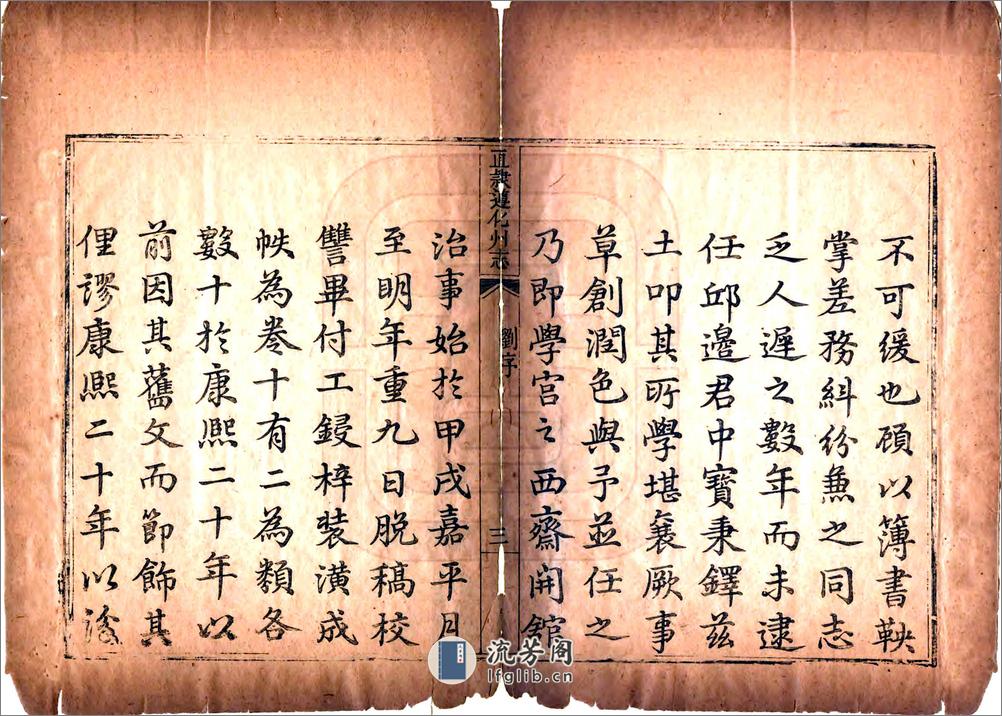 不可緩也顧以簿書鞅
掌差務糾紛兼之同志
乏人遲之數年而未逮
任邱邊君中寶秉鐸茲
土叩其所學堪襄厥事
草創潤色與予並任之
乃即學宮之西齋開館
直隸遵化州志
劉序
三
治事始於甲戌嘉平月
至明年重九日脫稿校
讐畢付工鋟梓裝潢成
帙為卷十有二為類各
數十於康熙二十年以
前因其舊文而節飾其
俚謬康熙二十年以後
流芳阁
lfglib.cn